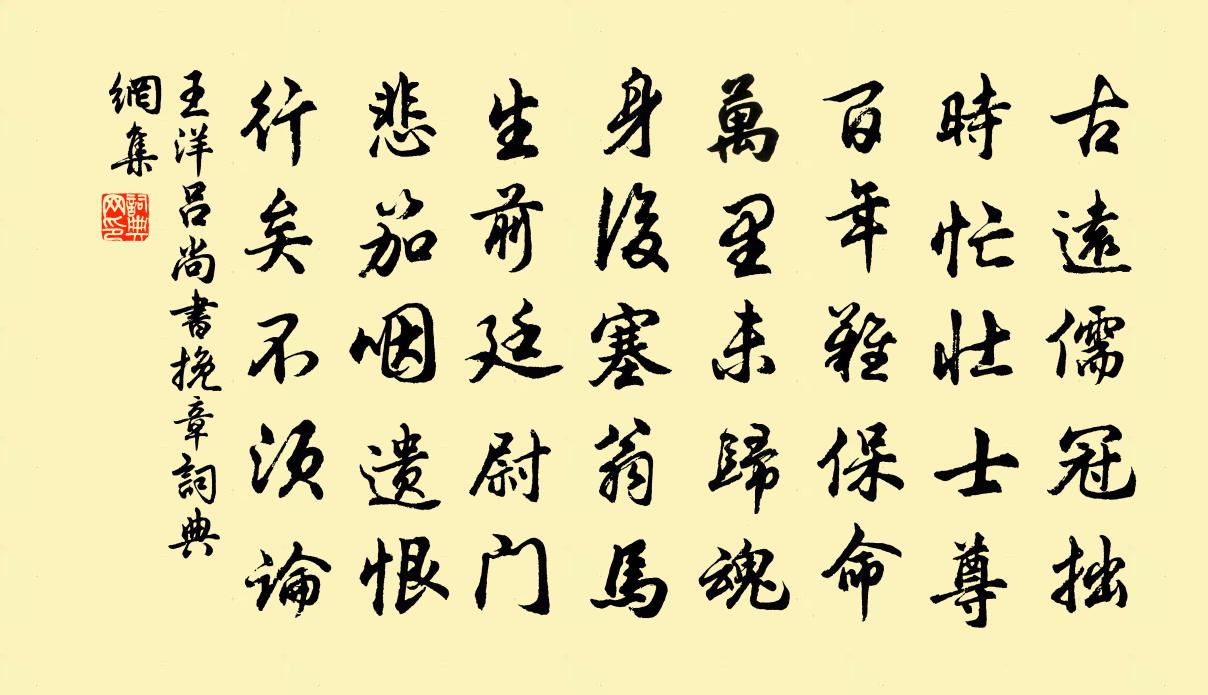 古遠儒冠拙
時忙壮士尊
百年難保命
萬里未歸魂
身後塞翁馬
生前廷尉门
悲笳咽遗恨
行矣不須論
王洋吕尚書挽章詞典
網集
詞典
网印